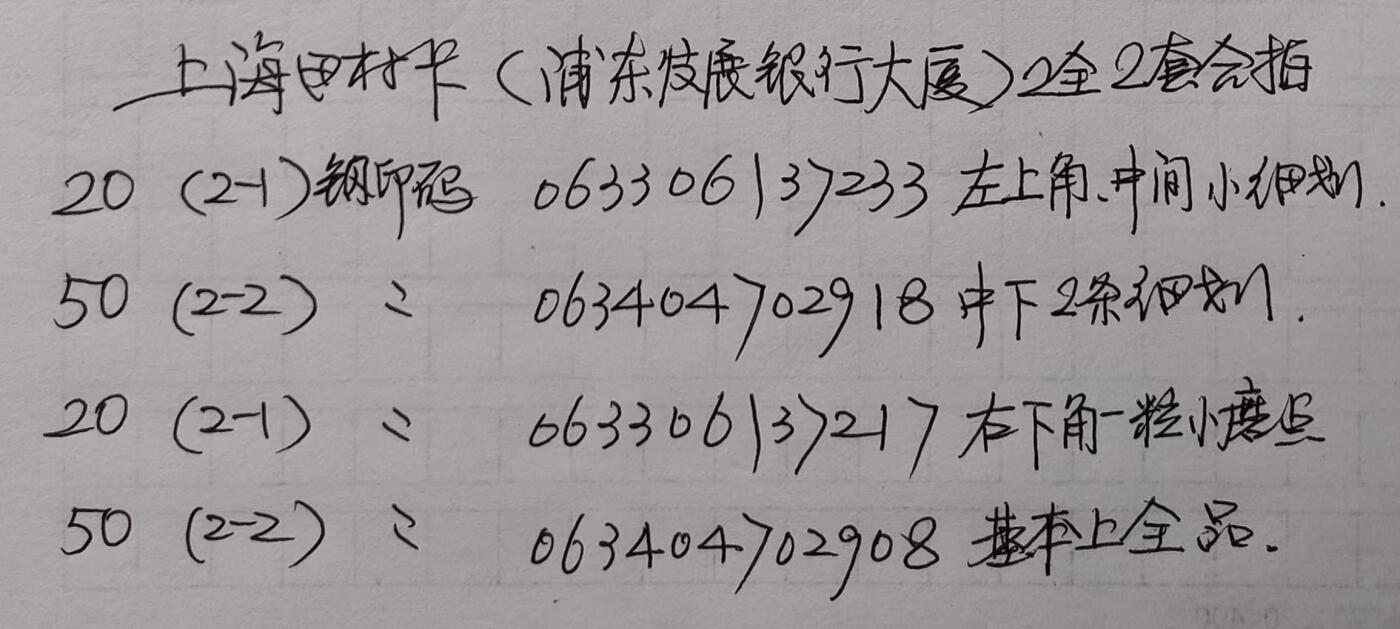 上海田村卡（浦东发展银行大厦）2全2套合拍
20 (2-1) 钢印码 063306137233 左上角、中间小细划.
50 (2-2) 〃 063404702918 中下2条细划.
20 (2-1) 〃 063306137217 右下角一粒小磨点
50 (2-2) 〃 063404702908 基本上全品.